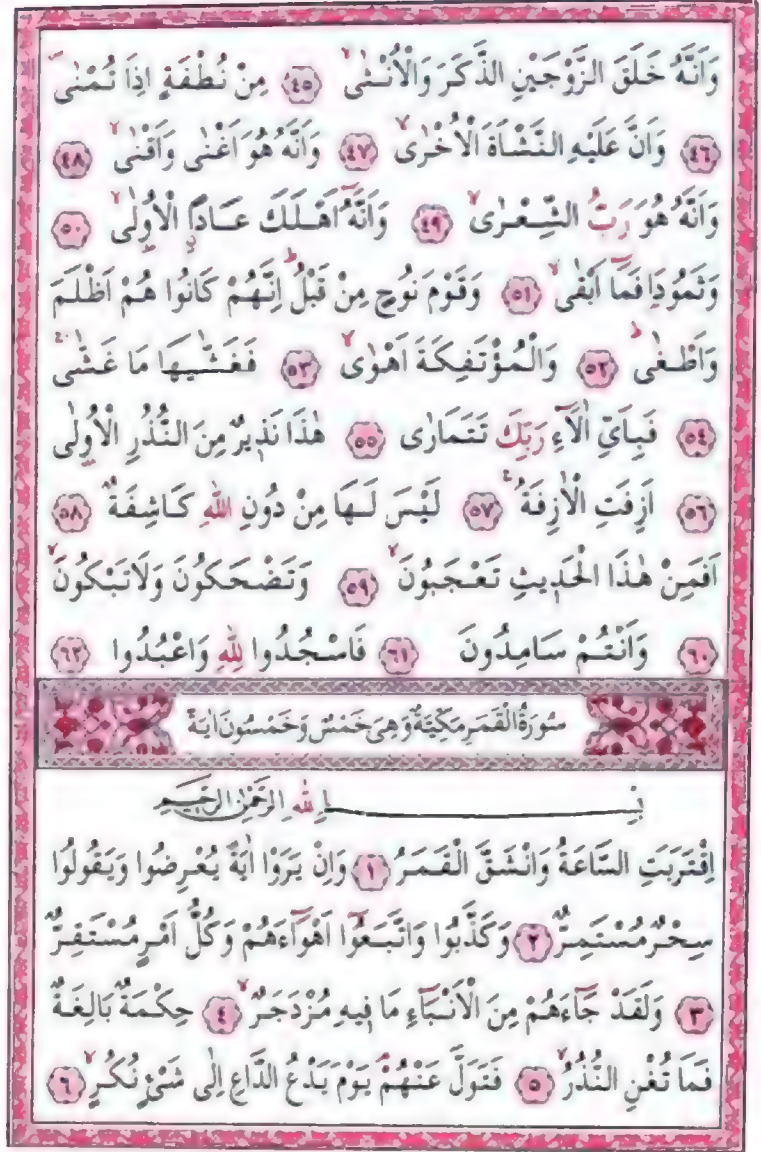 وَاَنَّهُ خَلَقَ الزَّوْجَيْنِ الذَّكَرَ وَالْاُنْثٰىۙ ﴿٤٥﴾ مِنْ نُطْفَةٍ اِذَا تُمْنٰىۖ
﴿٤٦﴾ وَاَنَّ عَلَيْهِ النَّشْاَةَ الْاُخْرٰىۙ ﴿٤٧﴾ وَاَنَّهُ هُوَ اَغْنٰى وَاَقْنٰىۙ ﴿٤٨﴾
وَاَنَّهُ هُوَ رَبُّ الشِّعْرٰىۙ ﴿٤٩﴾ وَاَنَّهُٓ اَهْلَكَ عَادًاۨ الْاُو۫لٰىۙ ﴿٥٠﴾
وَثَمُودَا۬ فَمَٓا اَبْقٰىۙ ﴿٥١﴾ وَقَوْمَ نُوحٍ مِنْ قَبْلُۜ اِنَّهُمْ كَانُوا هُمْ اَظْلَمَ
وَاَطْغٰىۜ ﴿٥٢﴾ وَالْمُؤْتَفِكَةَ اَهْوٰىۙ ﴿٥٣﴾ فَغَشّٰيهَا مَا غَشّٰىۚ
﴿٥٤﴾ فَبِاَيِّ اٰلَٓاءِ رَبِّكَ تَتَمَارٰى ﴿٥٥﴾ هٰذَا نَذ۪يرٌ مِنَ النُّذُرِ الْاُو۫لٰى
﴿٥٦﴾ اَزِفَتِ الْاٰزِفَةُۚ ﴿٥٧﴾ لَيْسَ لَهَا مِنْ دُونِ اللّٰهِ كَاشِفَةٌۜ ﴿٥٨﴾
اَفَمِنْ هٰذَا الْحَد۪يثِ تَعْجَبُونَۙ ﴿٥٩﴾ وَتَضْحَكُونَ وَلَا تَبْكُونَۙ
﴿٦٠﴾ وَاَنْتُمْ سَامِدُونَ ﴿٦١﴾ فَاسْجُدُوا لِلّٰهِ وَاعْبُدُوا ﴿٦٢﴾
سُورَةُ الْقَمَرِ مَكِّيَّةٌ وَهِىَ خَمْسٌ وَخَمْسُونَ اٰيَةً
بِسْمِ اللّٰهِ الرَّحْمٰنِ الرَّحِيمِ
اِقْتَرَبَتِ السَّاعَةُ وَانْشَقَّ الْقَمَرُ ﴿١﴾ وَاِنْ يَرَوْا اٰيَةً يُعْرِضُوا وَيَقُولُوا
سِحْرٌ مُسْتَمِرٌّ ﴿٢﴾ وَكَذَّبُوا وَاتَّبَعُٓوا اَهْوَٓاءَهُمْ وَكُلُّ اَمْرٍ مُسْتَقِرٌّ
﴿٣﴾ وَلَقَدْ جَٓاءَهُمْ مِنَ الْاَنْبَٓاءِ مَا ف۪يهِ مُزْدَجَرٌۙ ﴿٤﴾ حِكْمَةٌ بَالِغَةٌ
فَمَا تُغْنِ النُّذُرُۙ ﴿٥﴾ فَتَوَلَّ عَنْهُمْۢ يَوْمَ يَدْعُ الدَّاعِ اِلٰى شَيْءٍ نُكُرٍۙ ﴿٦﴾